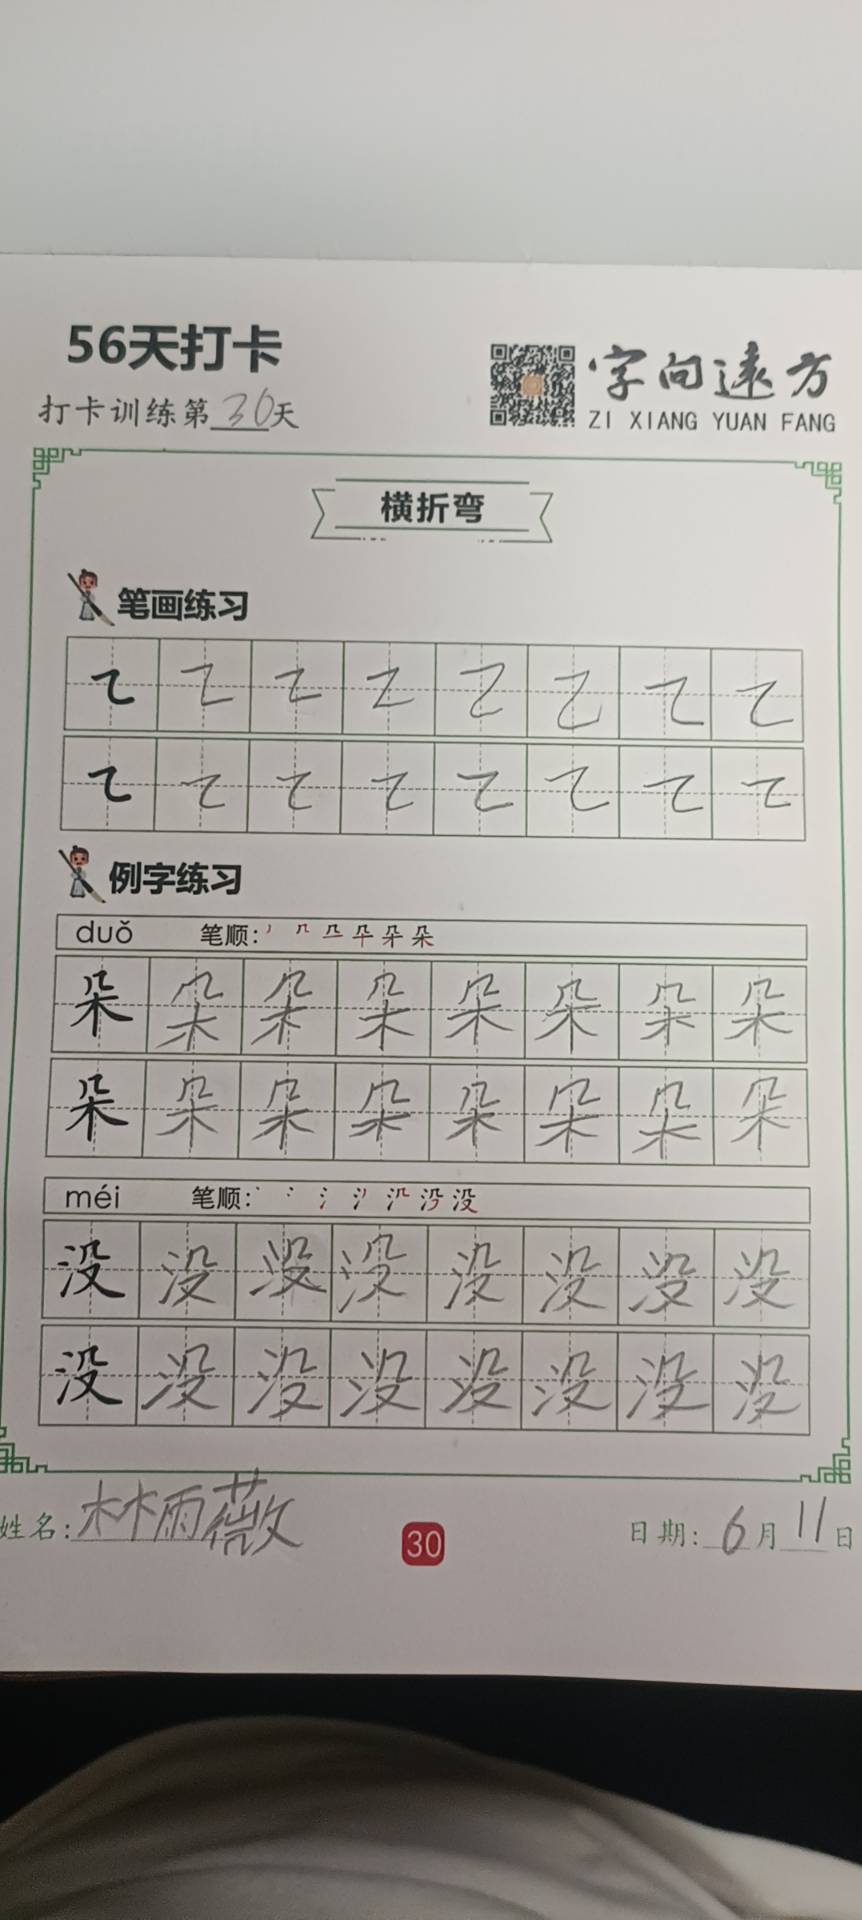 56天打卡
打卡训练第30天
字向远方
ZI XIANG YUAN FANG
横折弯
笔画练习
㇍ ㇍ ㇍ ㇍ ㇍ ㇍ ㇍ ㇍
㇍ ㇍ ㇍ ㇍ ㇍ ㇍ ㇍ ㇍
例字练习
duǒ 笔顺:
朵 朵 朵 朵 朵 朵 朵 朵
朵 朵 朵 朵 朵 朵 朵 朵
méi 笔顺:
没 没 没 没 没 没 没 没
没 没 没 没 没 没 没 没
姓名:林雨薇 30 日期:6月11日